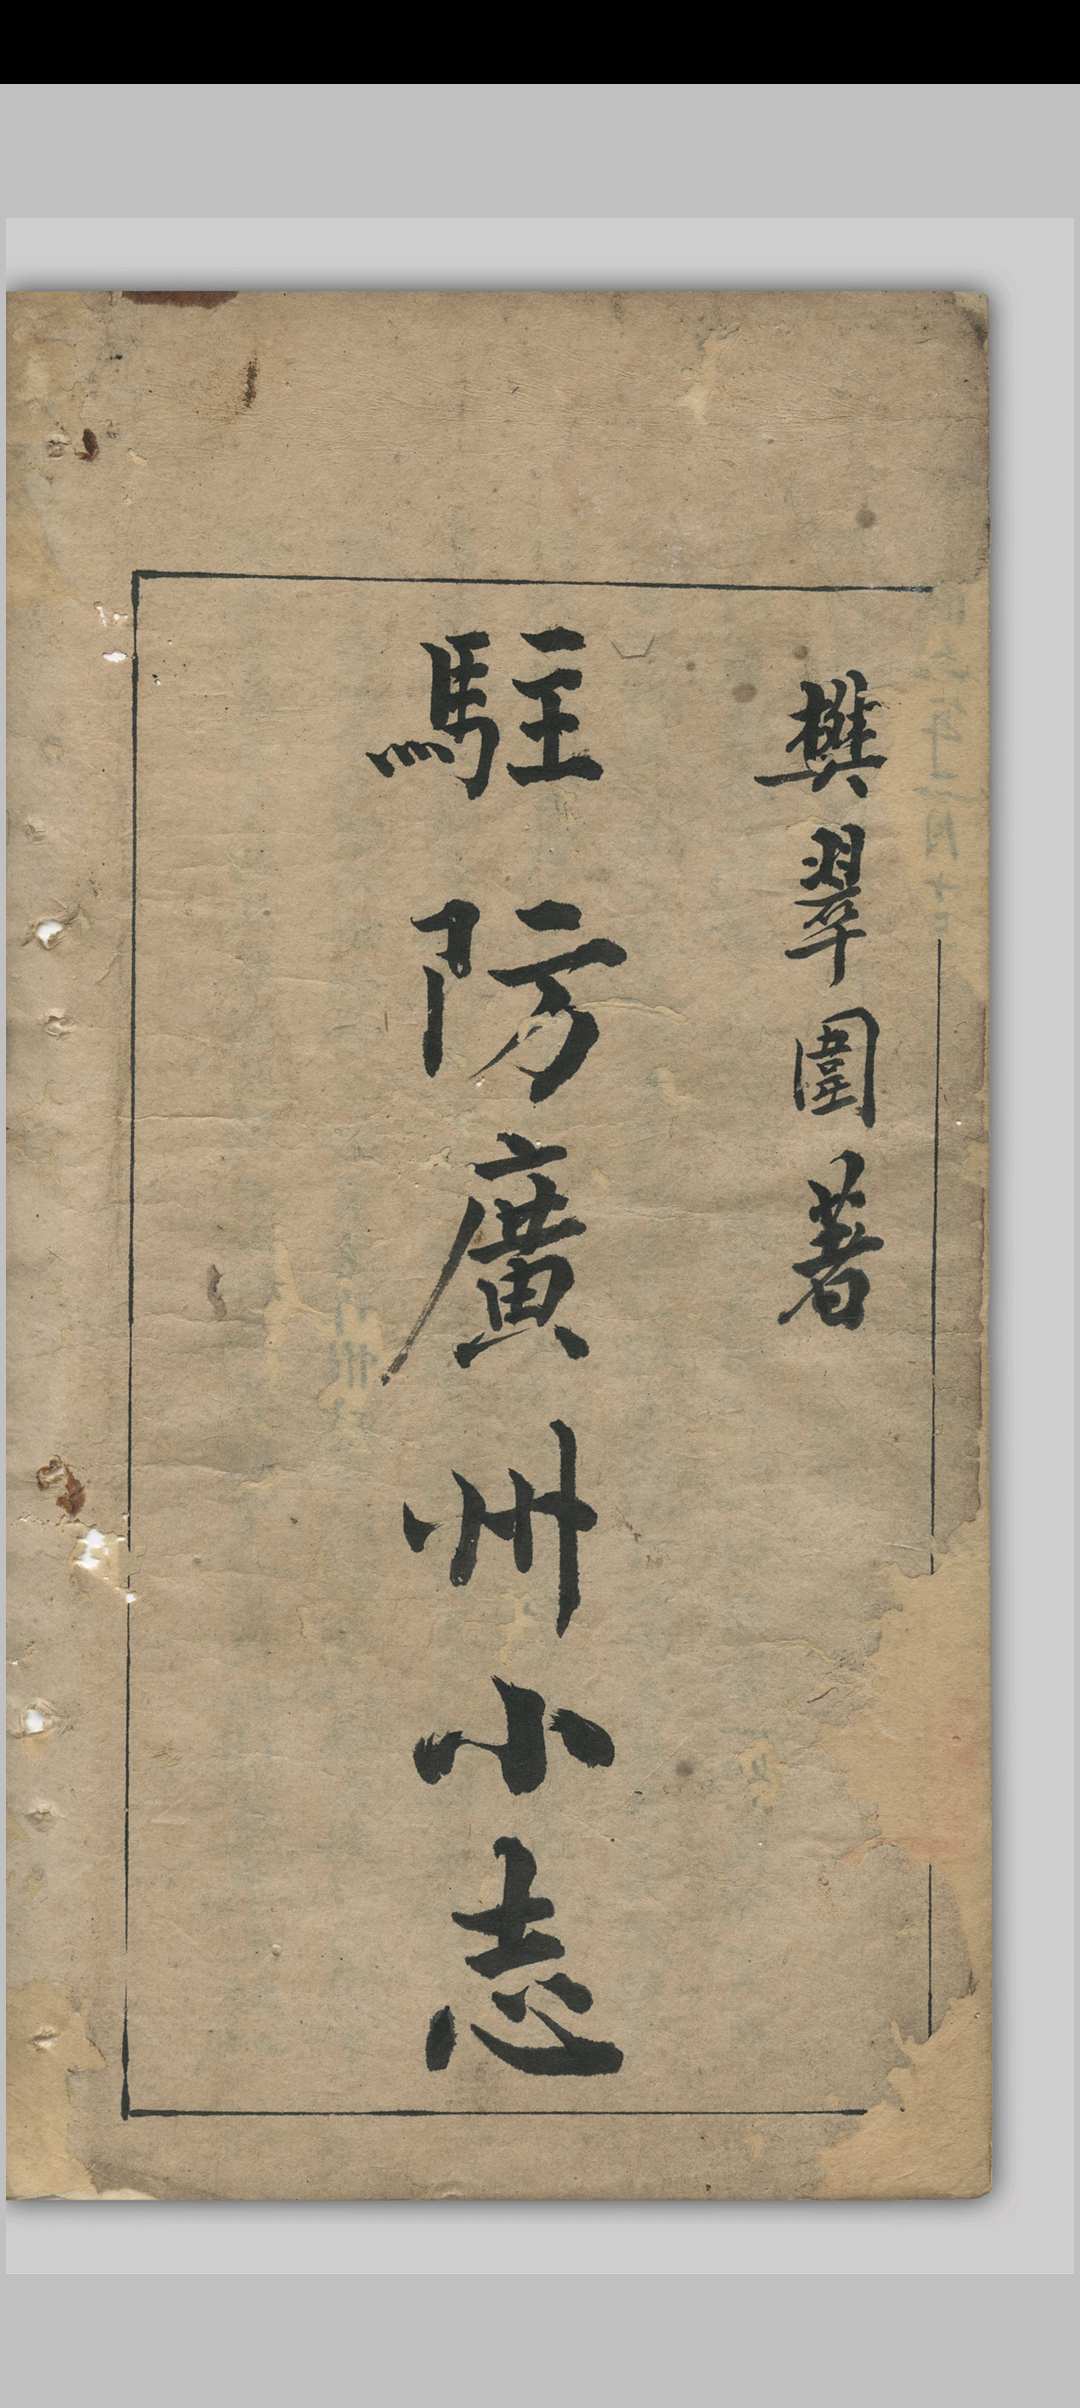 樊翠圍著
駐防廣州小志